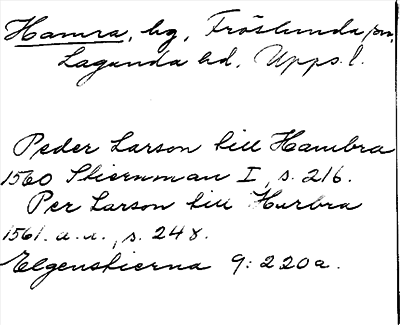 Hamra, by, Fröslunda sn,
Lagunda hd, Upps. l.
Peder Larson till Hambra
1560 Stiernman I, s. 216.
Per Larson till Hurbra
1561. a.a., s. 248.
Elgenstierna 9: 220a.